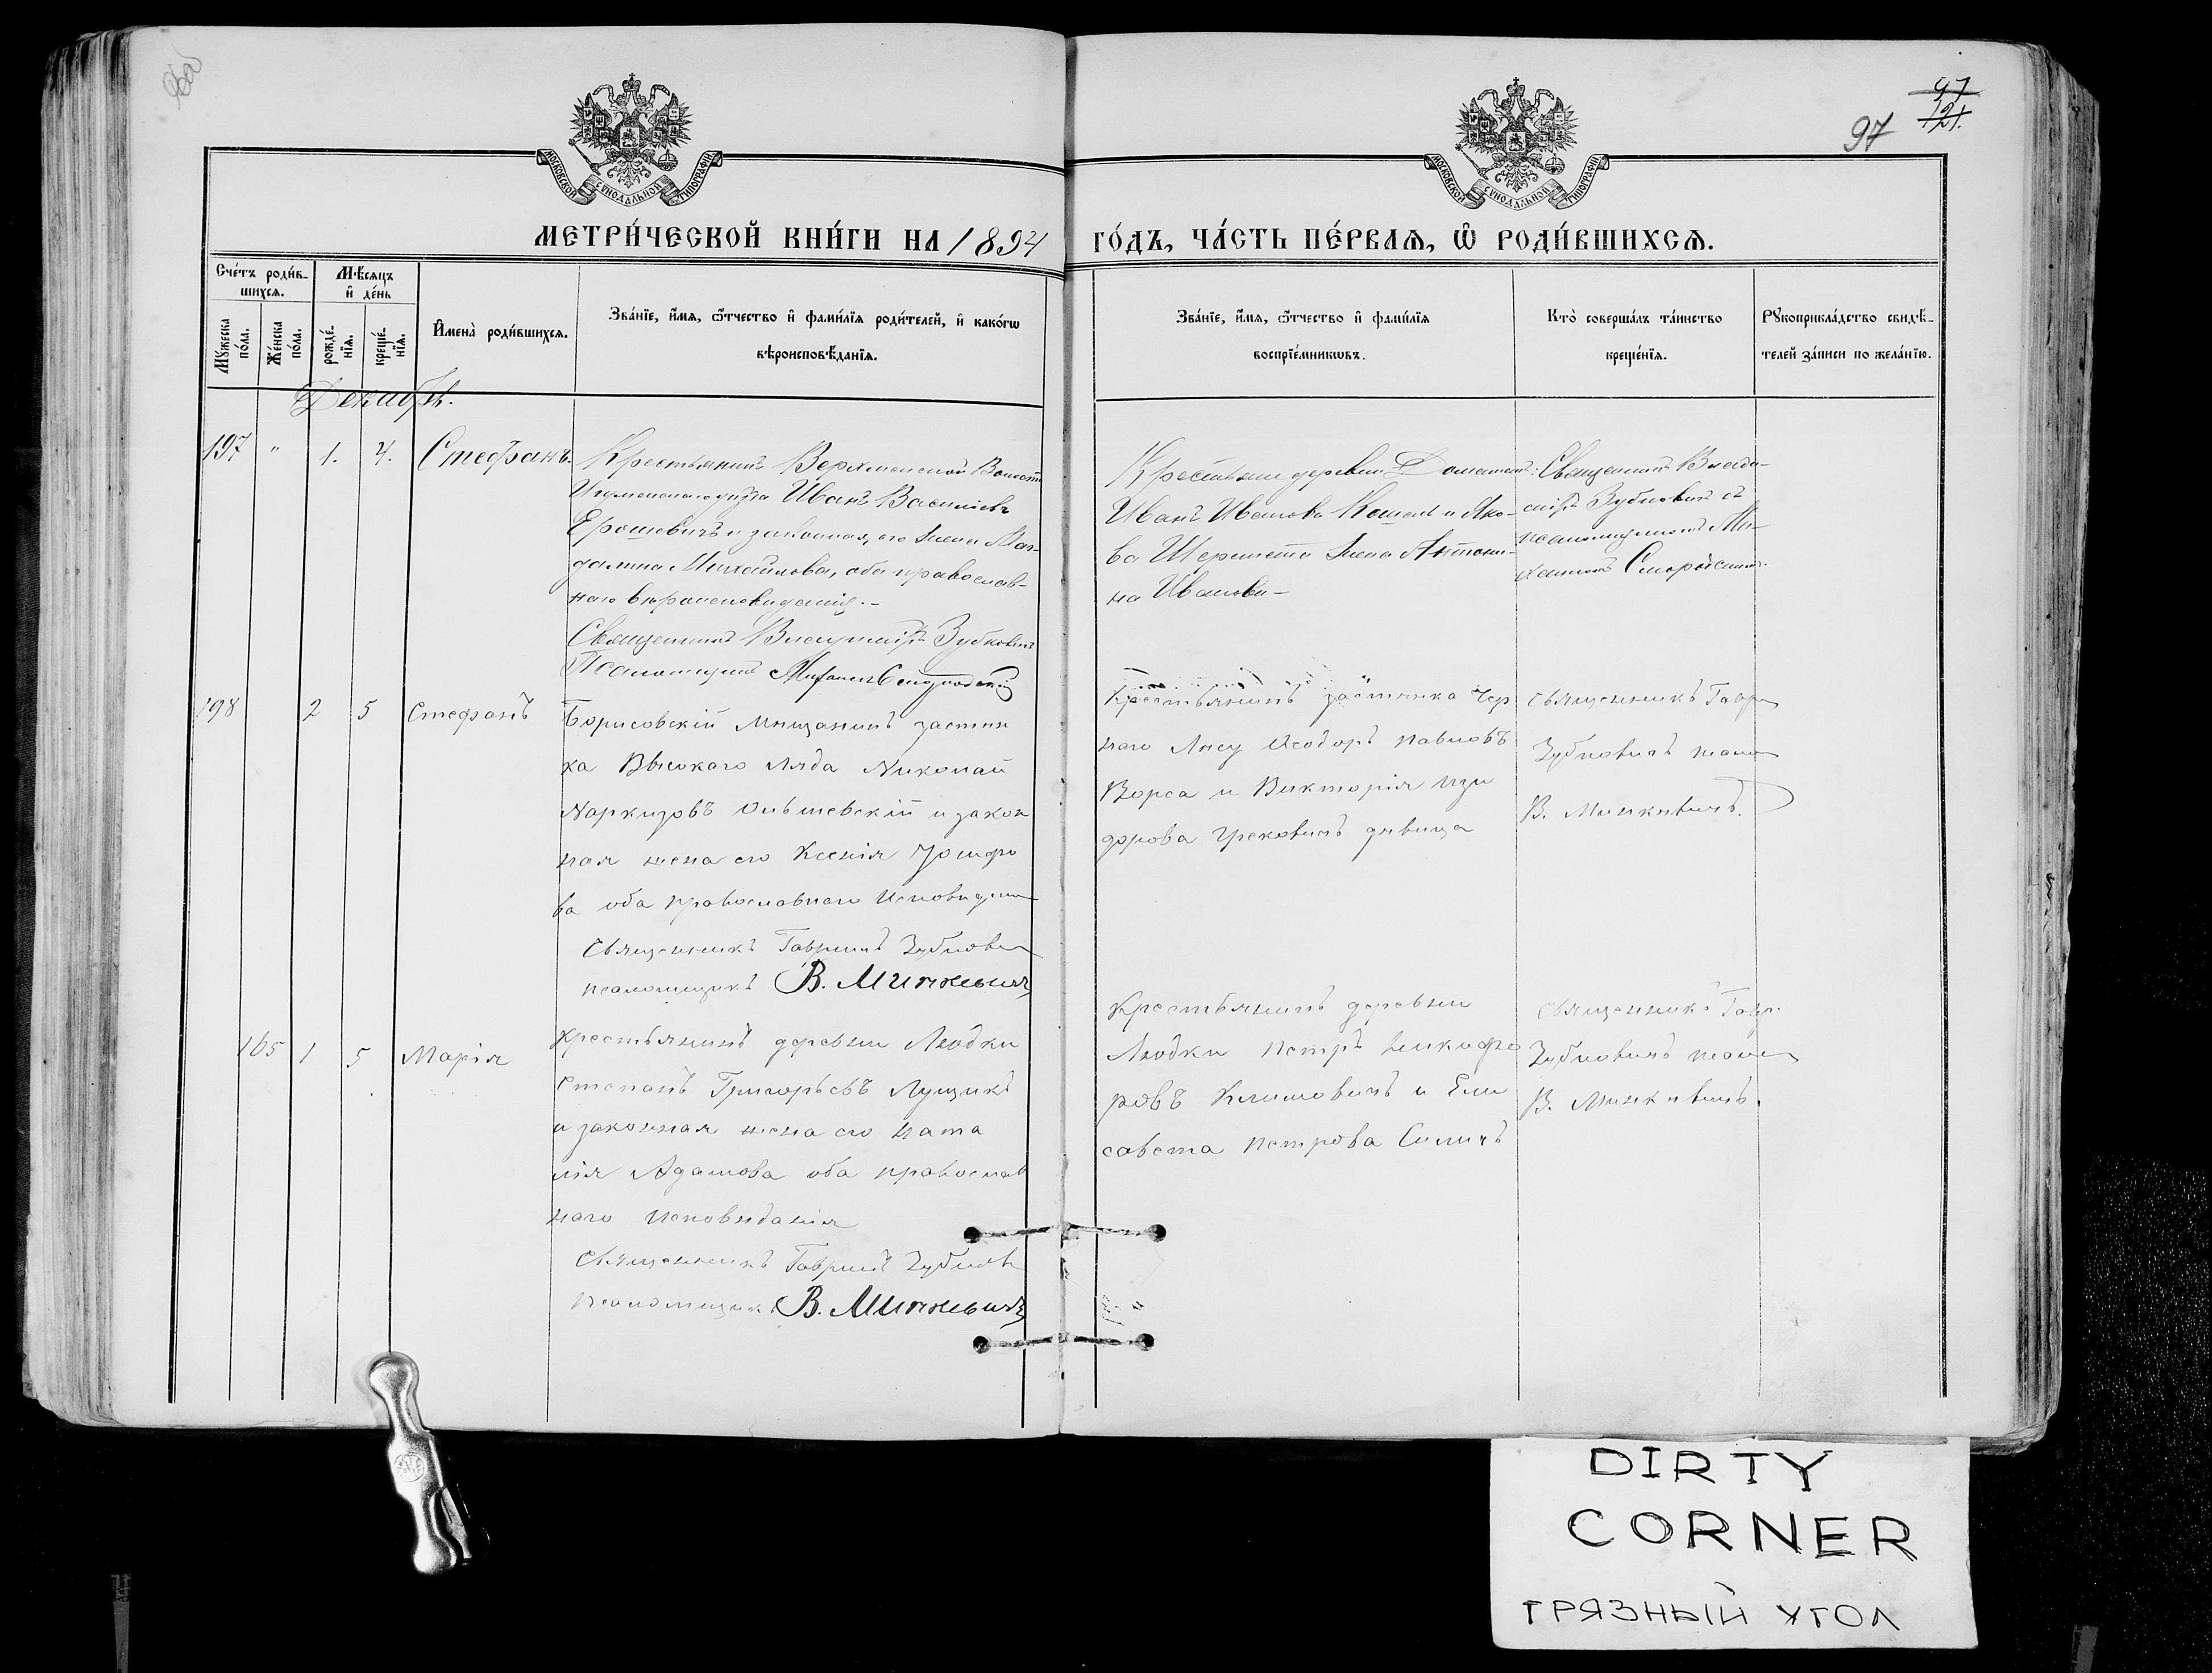 97
121.
97
МОСКОВСКОЙ СѴНОДАЛЬНОЙ ТИПОГРАФІИ
МОСКОВСКОЙ СѴНОДАЛЬНОЙ ТИПОГРАФІИ
МЕТРИ́ЧЕСКОЙ КНИ́ГИ НА 1894 ГО́ДЪ, ЧА́СТЬ ПЕ́РВАЯ, Ѡ РОДИ́ВШИХСЯ.
Сче́тъ роди́в-
шихся.
Мѣ́сяцъ
и҆ де́нь
Мꙋ́жеска
по́ла.
Же́нска
по́ла.
рожде́-
нїя.
креще́-
нїя.
И҆мена̀ роди́вшихся.
Зва́нїе, и҆́мя, ѻ҆́тчество и҆ фами́лїя роди́телей, и҆ како́гѡ
вѣроисповѣ́данїя.
Зва́нїе, и҆́мя, ѻ҆́тчество и҆ фами́лїя
воспрїе́мникѡвъ.
Кто̀ соверша́лъ та́инство
креще́нїя.
Рꙋкоприкла́дство свидѣ́-
телей за́писи по жела́нїю.
Декабрь.
197 " 1. 4. Стефанъ.
Крестьянинъ Верхменской Волости
Игуменскаго уѣзда Иванъ Васильевъ
Ерошевичъ и законная его жена Маг-
далина Михайлова, оба православ-
наго вѣроисповѣданія.-
Священникъ Владиміръ Зубковичъ
Псаломщикъ Михаилъ
Крестьяне деревни
Иванъ Ивановъ и Яко-
ва жена Антони-
на Иванова-
Священникъ Влади-
міръ Зубковичъ съ
псаломщикомъ Ми-
хаиломъ
198 2 5 Стефанъ
Борисовскій мѣщанинъ застѣн
ка Высокаго Ляда Николай
Наркизовъ Ольшевскій и закон
ная жена его Ксенія Іосифо
ва оба православнаго исповѣдані
Священникъ Гавриилъ Зубкови
псаломщикъ В. Минкевичъ
Крестьянинъ застѣнка Чер
наго Лѣсу Ѳеодоръ Павловъ
Ворса и Викторія Изи
дорова Грековичъ дѣвица
Священникъ Гавр
Зубковичъ псалом
В. Минкевичъ.
165 1 5 Марія
Крестьянинъ деревни Лводки
Степанъ Григорьевъ Лущикъ
и законная жена его Ната
лія Адамова оба православ
наго исповѣданія
Священникъ Гавриилъ Зубков
псаломщикъ В. Минкевичъ
Крестьянинъ деревни
Лводки Петръ Никифо
ровъ Климовичъ и Ели
савета Петрова Силичъ
Священникъ Гавр.
Зубковичъ псалом
В. Минкевичъ.
DIRTY
CORNER
ГРЯЗНЫЙ УГОЛ